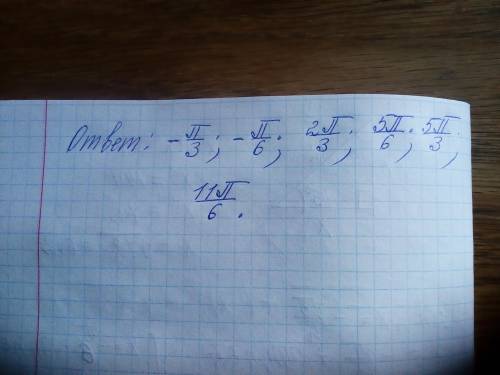 Ответ: -π/3; -π/6; 2π/3; 5π/6; 5π/3;
11π/6.